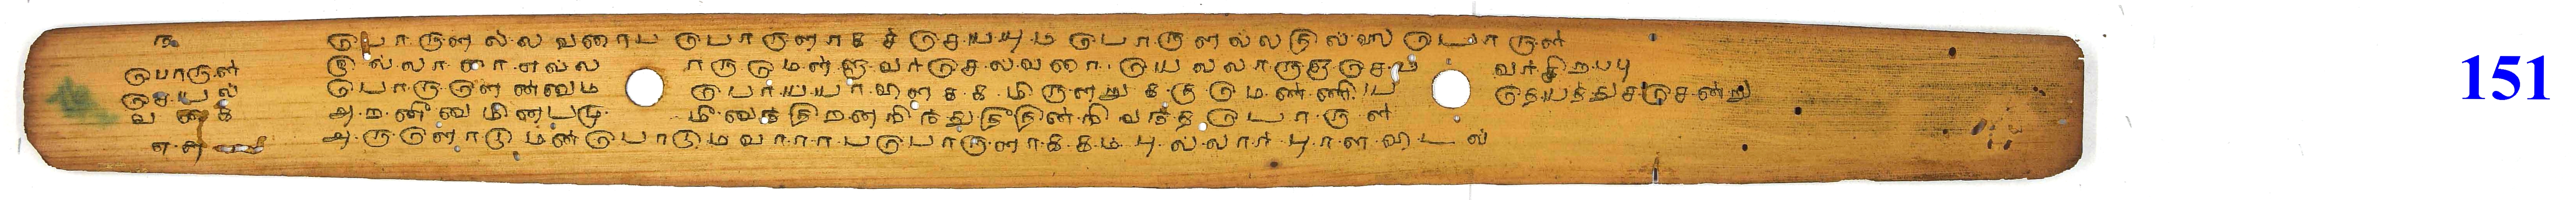 பொருளல்லவரைப பொருளாகச் செயயும பொருளல்லதில்லை பொருள்
பொருள் இல்லாரை எல்லாருமெள்ளுவர்செலவரை யெலலாருஞசெயவர்சிறபபு
செயல் பொருளெனனும பொயயாவிளகக மிருளறுககுமெண்ணிய தெயத்துசசென்று
வகை அறனீனுமினபமு மீனுந்திறனறிந்துதீதின்றி வந்த பொருள்
அருளொடு மன்பொடும வாராபபொருளாககம புல்லார் புரள விடல்